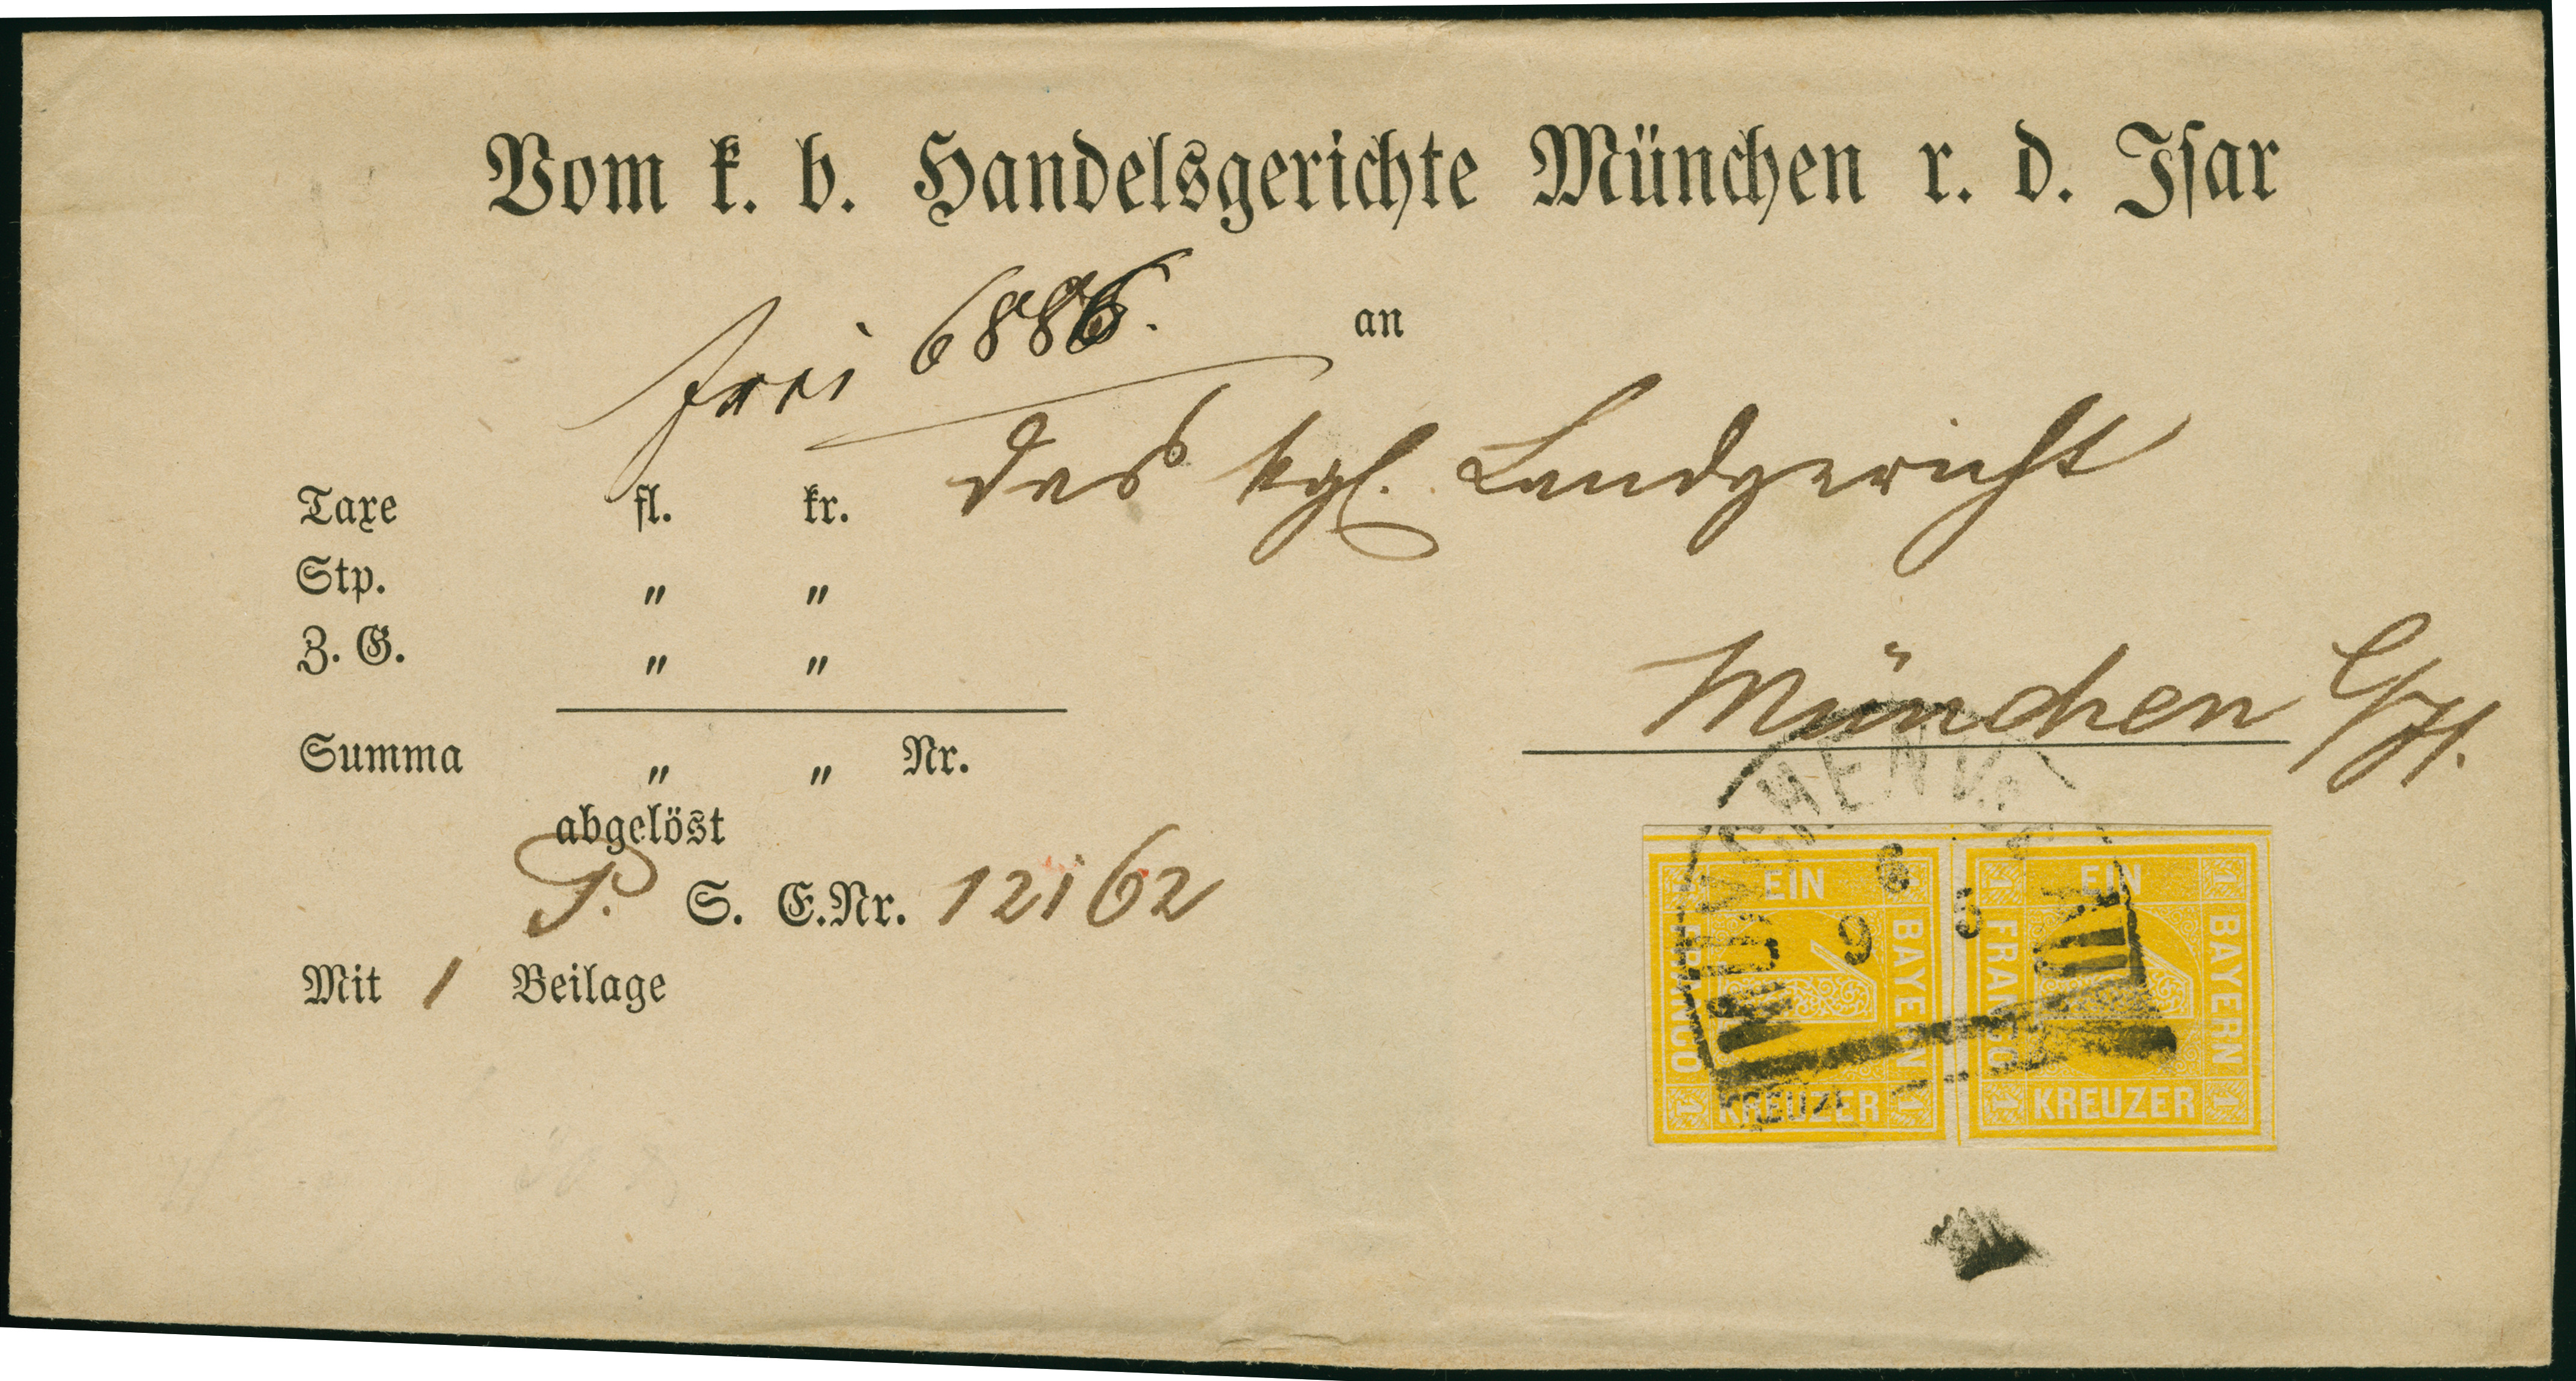 Vom k. b. Handelsgerichte München r. d. Isar
frei 6886.
an
das kgl. Landgericht
München
Taxe fl. kr.
Stp. " "
Z. G. " "
Summa " " Nr.
abgelöst
P. S. E.Nr. 12162
Mit 1 Beilage
MÜNCHEN
6
9 5
EIN
BAYERN
FRANCO
KREUZER
1
1
1
1
EIN
BAYERN
FRANCO
KREUZER
1
1
1
1